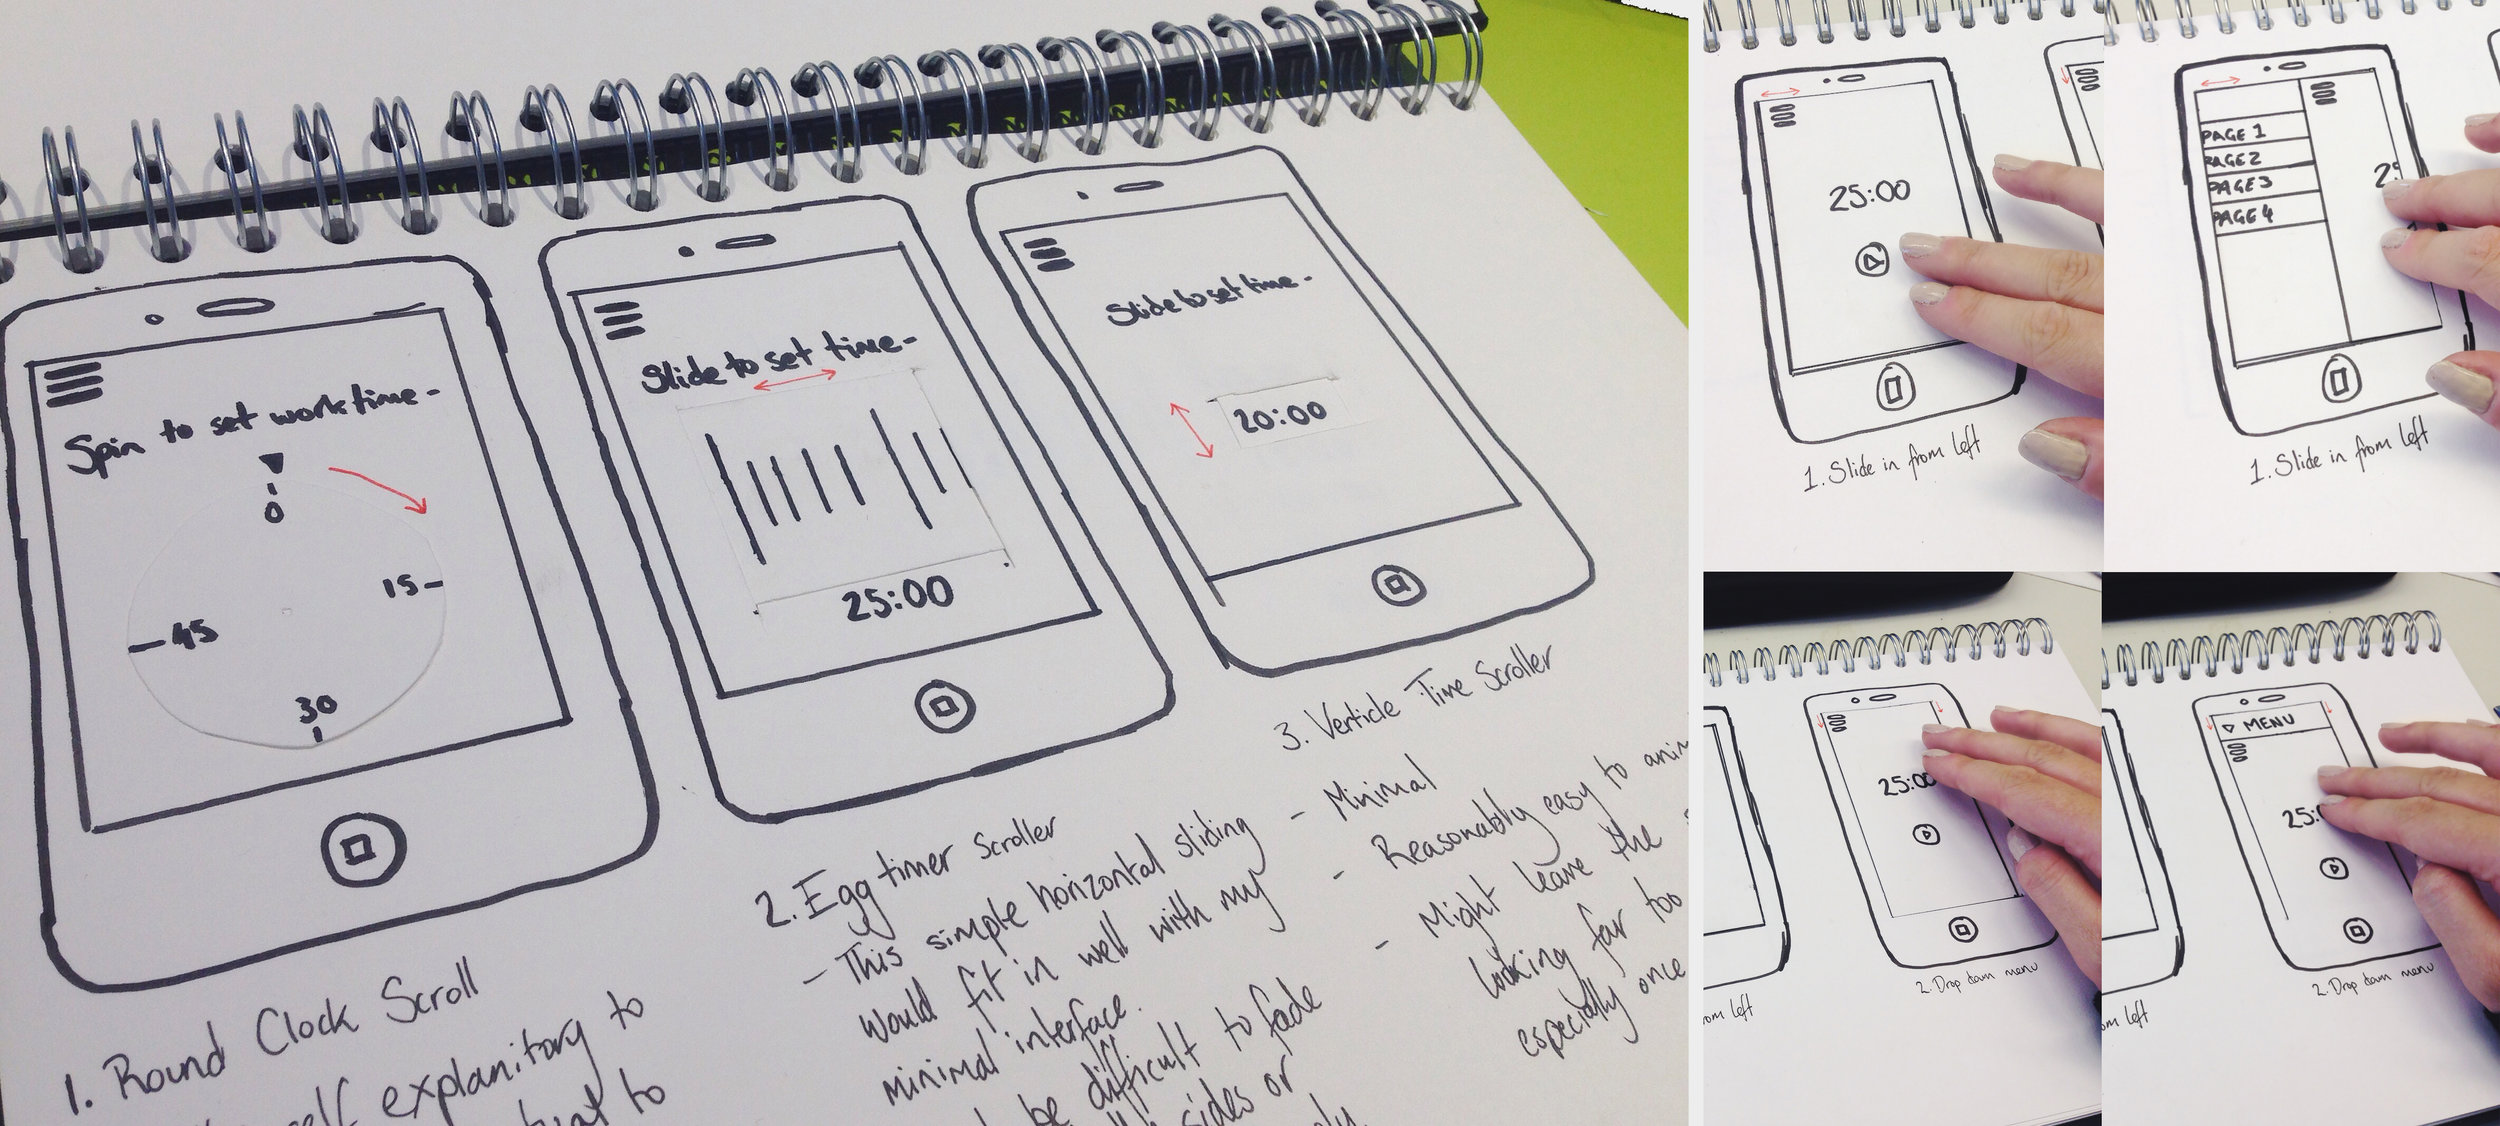 Spin to set work time-
0
15-
30
-45
1. Round Clock Scroll
self explanitory to
to
Slide to set time-
25:00
2. Egg timer Scroller
- This simple horizontal sliding
would fit in well with my
minimal interface.
be difficult to fade
sides or
Slide to set time-
20:00
3. Verticle Time Scroller
- Minimal
- Reasonably easy to
- Might leave the
looking far too
especially once
25:00
1. Slide in from left
PAGE 1
PAGE 2
PAGE 3
PAGE 4
1. Slide in from left
25:00
2. Drop down menu
left
MENU
25:
2. Drop down menu
left